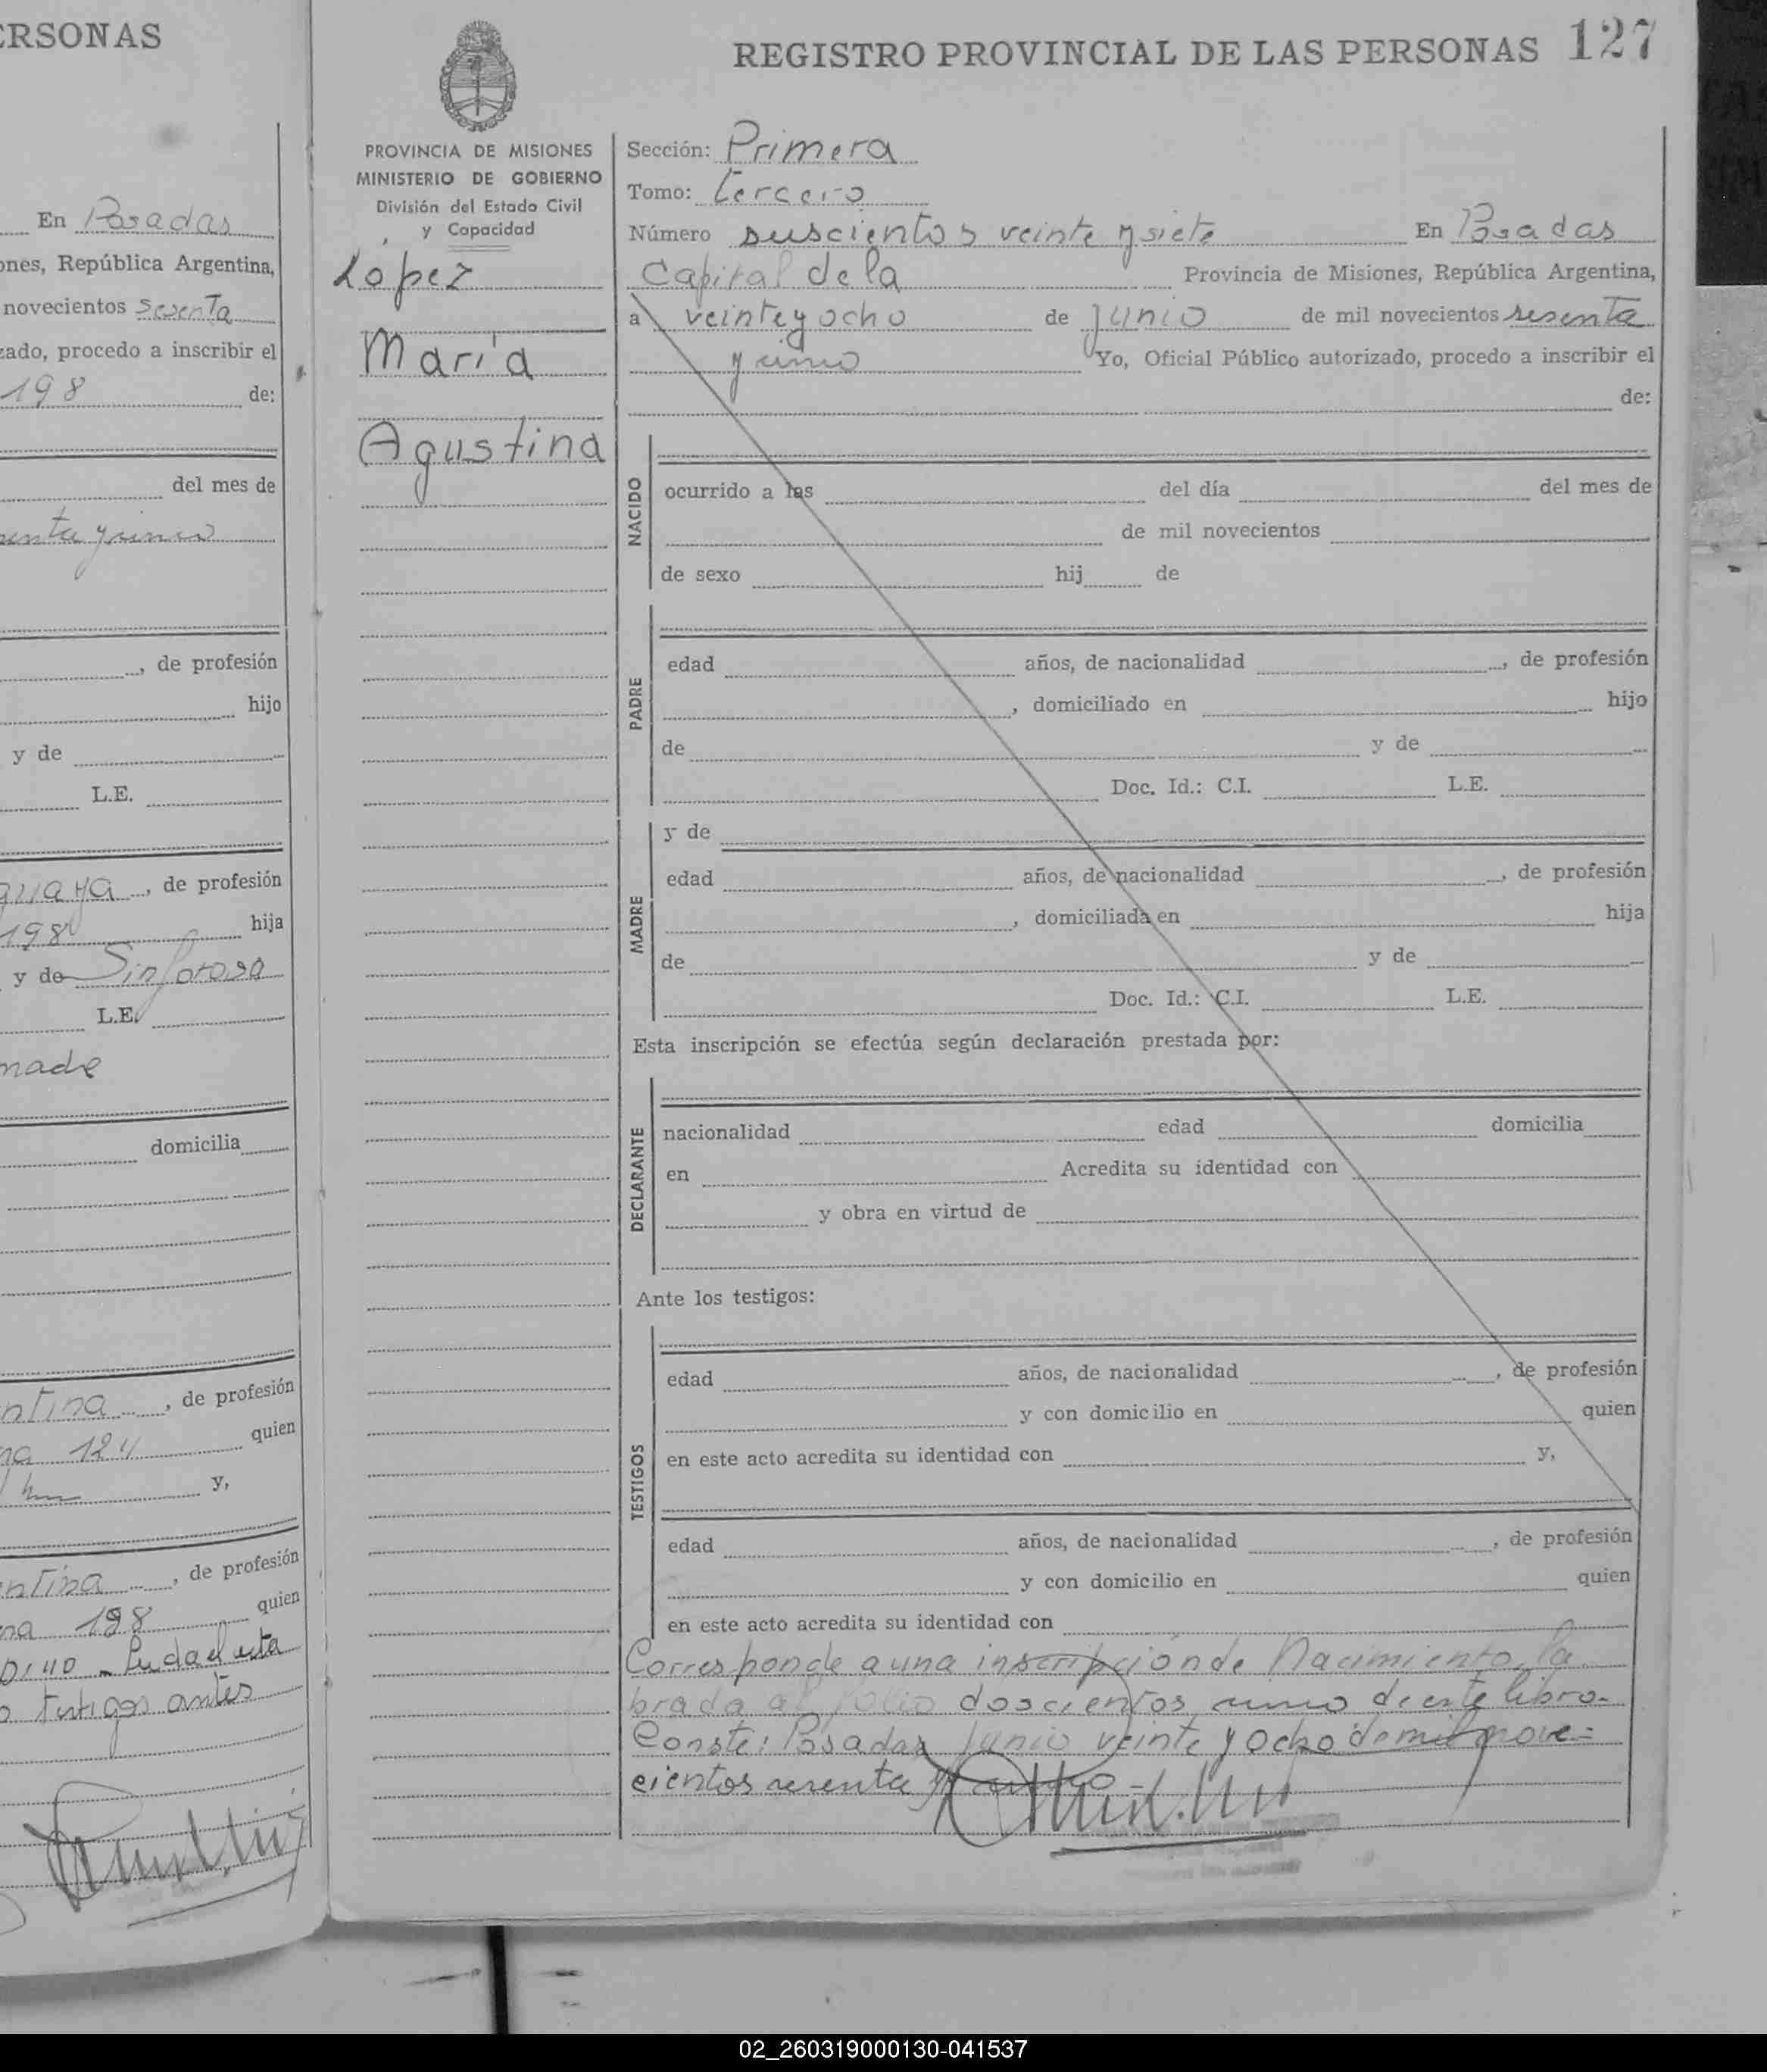 ERSONAS
En Posadas
ones, República Argentina,
novecientos sesenta
zado, procedo a inscribir el
198 de:
del mes de
senta y uno
, de profesión
hijo
y de
L.E.
guaya, de profesión
198 hija
y de Sinforosa
L.E.
madre
domicilia
ntina, de profesión
na 124 quien
y,
ntina, de profesión
na 198 quien
testigos antes
REGISTRO PROVINCIAL DE LAS PERSONAS 127
PROVINCIA DE MISIONES
MINISTERIO DE GOBIERNO
División del Estado Civil
y Capacidad
López
María
Agustina
Sección: Primera
Tomo: tercero
Número duscientos veinte y siete En Posadas
Capital de la Provincia de Misiones, República Argentina,
a veinte y ocho de junio de mil novecientos sesenta
y uno Yo, Oficial Público autorizado, procedo a inscribir el
de:
NACIDO
ocurrido a las del día del mes de
de mil novecientos
de sexo hij de
PADRE
edad años, de nacionalidad , de profesión
, domiciliado en hijo
de y de
Doc. Id.: C.I. L.E.
MADRE
y de
edad años, de nacionalidad , de profesión
, domiciliada en hija
de y de
Doc. Id.: C.I. L.E.
Esta inscripción se efectúa según declaración prestada por:
DECLARANTE
nacionalidad edad domicilia
en Acredita su identidad con
y obra en virtud de
Ante los testigos:
TESTIGOS
edad años, de nacionalidad , de profesión
y con domicilio en quien
en este acto acredita su identidad con y,
edad años, de nacionalidad , de profesión
y con domicilio en quien
en este acto acredita su identidad con
Corresponde a una inscripción de Nacimiento, la
brada al folio doscientos uno de este libro.
Conste: Posadas Junio veinte y ocho de mil nove=
cientos sesenta y uno.-
02_260319000130-041537